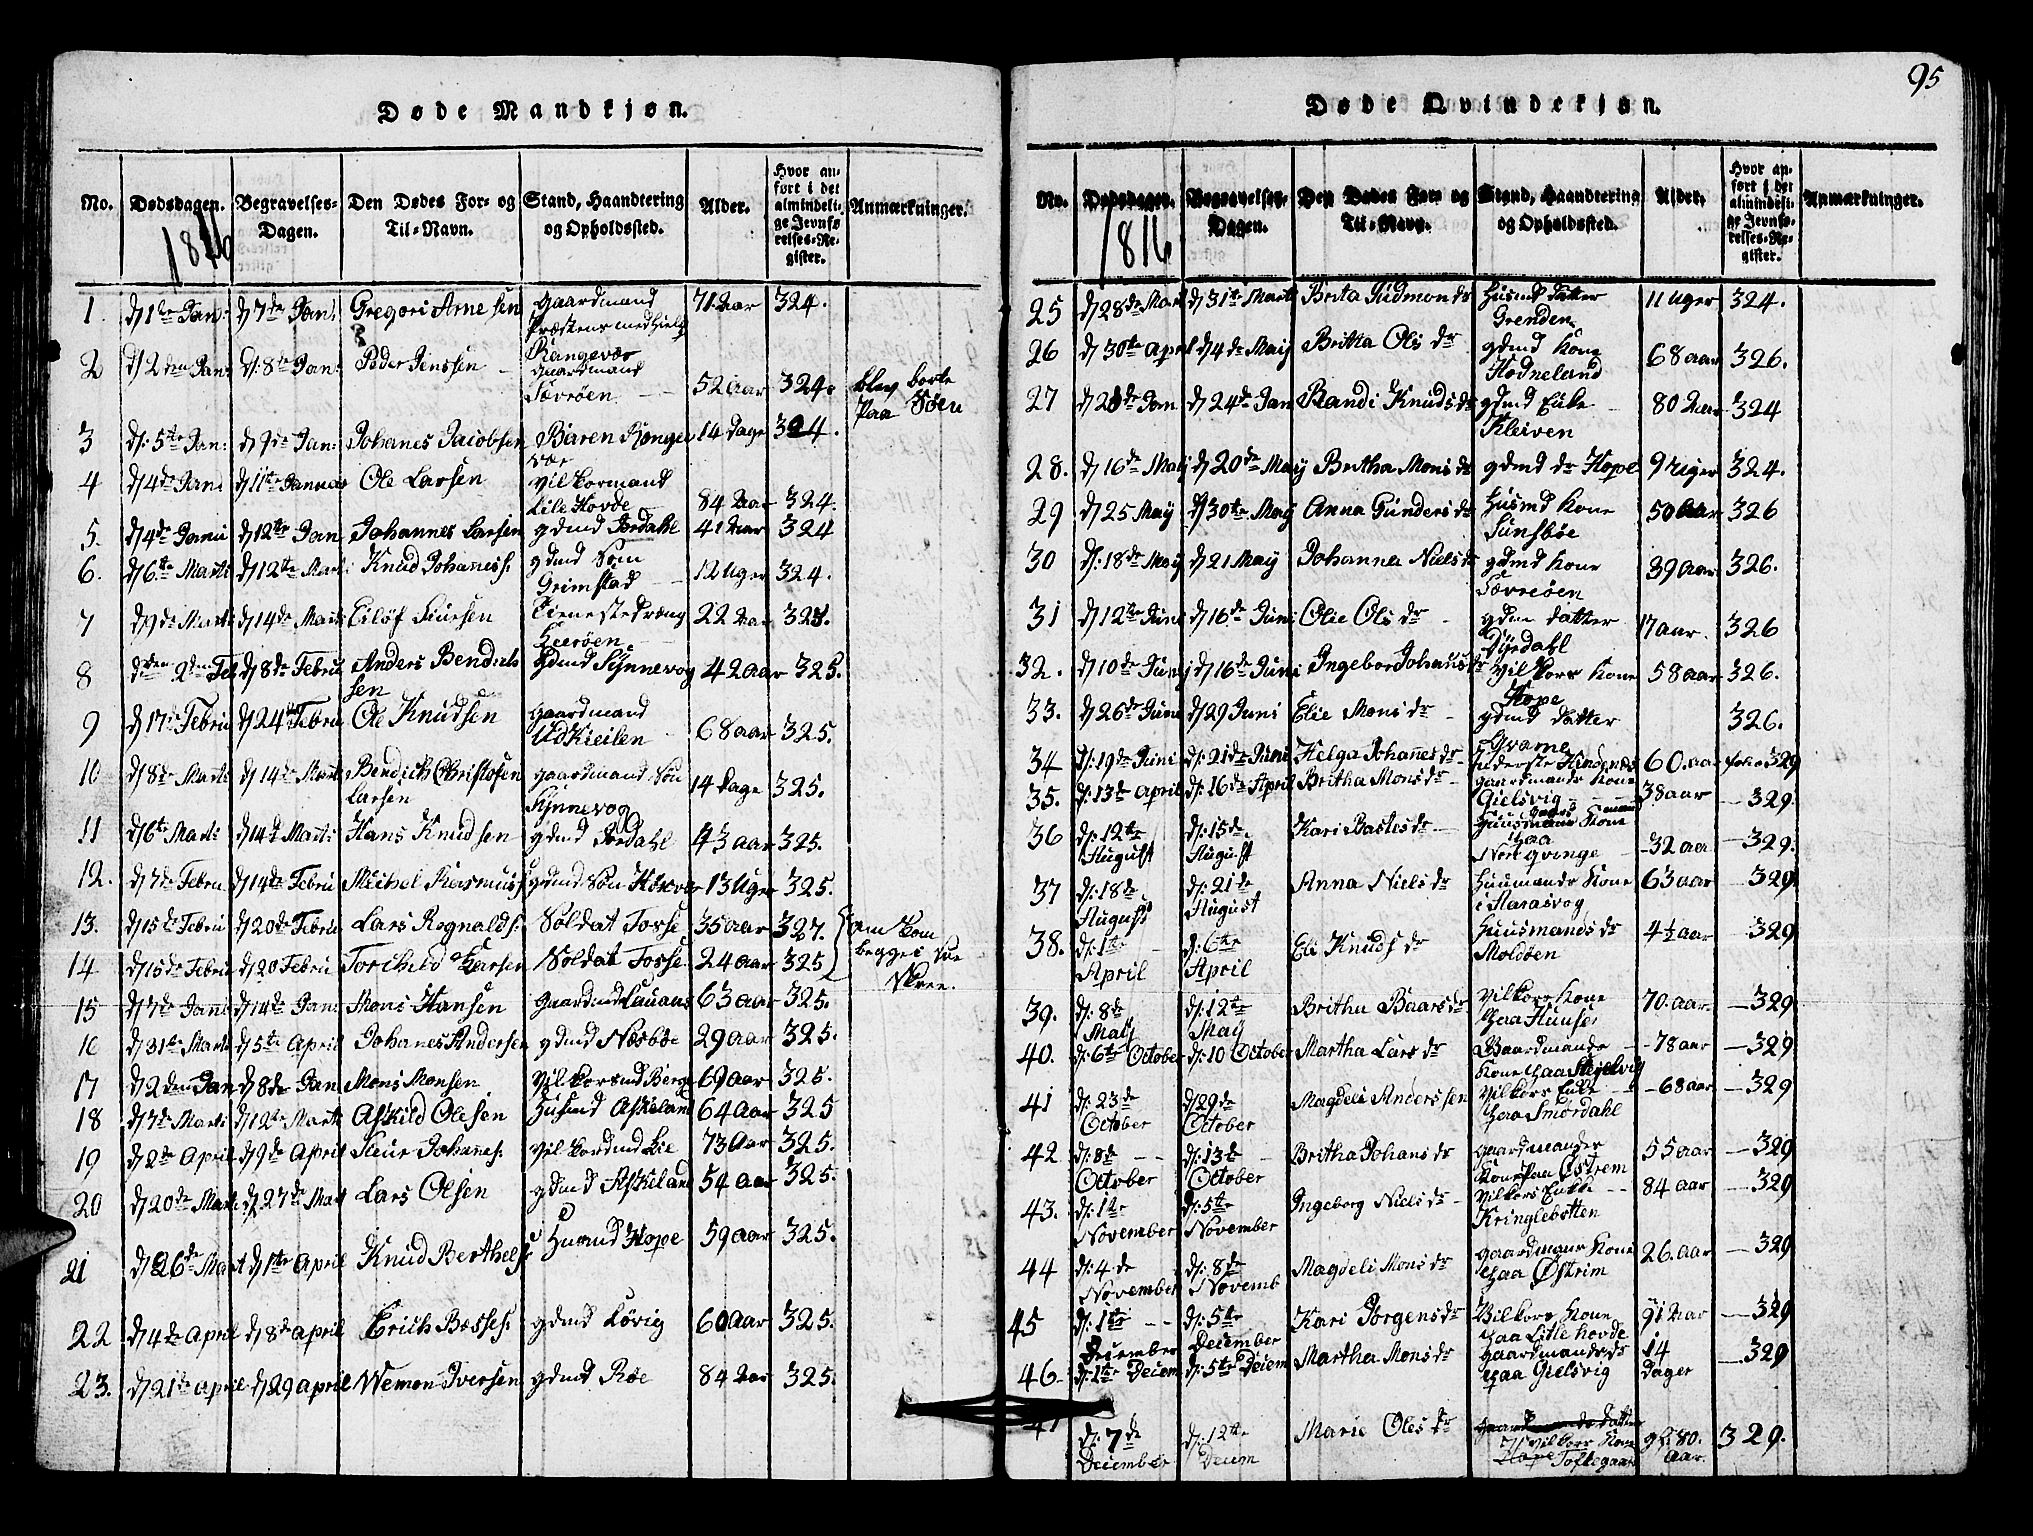 95
Døde Mandkjøn.
No. Dødsdagen. Begravelses-Dagen. Den Dødes For- og Til-Navn. Stand, Haandtering og Opholdssted. Alder. Hvor anført i det almindelige Jevnførelses-Register. Anmærkninger.
1816
1. d/ 1ste Jan: d/ 7de Jan: Gregori Arnesen Gaardmand 71 Aar 324.
2 d/ 2den Jan: d/: 8de Jan: Peder Jenssen Gaardmand Sævröen 52 aar 324. blev borte paa Søen
3 d/: 5te Jan: d/ 9de Jan: Johanes Jacobsen 14 dage 324.
4 d/ 4de Jan: d/ 11te Januar Ole Larsen Vilkormand Lile Hovde 84 Aar 324.
5. d/ 4de Janu d/ 12te Jan Johannes Larsen gdmd Jordahl 41 Aar 324
6. d/ 6te Marts d/ 12te Marts Knud Johaness: gdmd Søn Grimstad 12 Uger 324.
7 d/ 9de Marts d/ 14de Marts Eilöf Siursen Tienestedreng 22 Aar 324.
8 d/ 2den Feb d/ 8de Febru Anders Bendichsen Gdmd Synnevog 42 aar 325.
9 d/ 17de Febru d/ 24de Febru Ole Knudsen Gaardmand UdKieilen 68 aar 325.
10 d/ 8de Marts d/ 14de Marts Bendich Christofsen Larsen gaardmands Søn Synnevog 14 dage 325.
11 d/ 6te Marts d/ 14de Marts Hans Knudsen gdmd Jordahl 43 aar 325.
12. d/ 7de Febru d/ 14de Febru Michel Rasmuss: gdmd Søn 13 Uger 325.
13. d/ 15de Febru d/ 20de Febru Lars Rognalds: Soldat Fosse 35 aar 327. omkom
14 d/ 15de Febru d/ 20 Febru Torchild Larsen Soldat Fosse 24 aar 325 begge i Snee Skree.
15 d/ 7de Janu d/ 14de Jan: Mons Hansen Gaardmd 63 aar 325.
16 d/ 31te Marts d/ 5te April Johanes Andersen gdmd Næsbøe 29 aar 325.
17 d/ 2den Jan d/ 8de Jan Mons Monsen Vilkorsmd Berge 69 aar 325.
18 d/ 7de Marts d/ 12te Marts Askild Olesen Husmd Askeland 64 Aar 325
19 d/ 2de April d/ 9de April Siur Johanes: Vilkordmd Lie 73 Aar 325.
20 d/ 20de Marts d/ 27de Mart Lars Olsen gdmd Askeland 54 aar 325.
21 d/ 26de Mart d/ 1ste April Knud Berthels: Husmd Hope 59 aar 325.
22 d/ 4de April d/ 8de April Erich Basses: gdmd Lövig 60 Aar 325.
23. d/ 21te April d/ 29 April Wemon Iversen gdmd Røe 84 Aar 325.
Døde Qvindekjøn.
No. Dødsdagen. Begravelses-Dagen. Den Dødes For- og Til-Navn. Stand, Haandtering og Opholdssted. Alder. Hvor anført i det almindelige Jevnførelses-Register. Anmærkninger.
1816
25 d/ 28de Mart d/ 31te Marts Brita Gudmonds dr Husmd datter Grenden 11 Uger 324.
26 d/ 30te April d/ 4de May Britta Ols dr gdmd Kone Hodneland 68 aar 326.
27 d/ 20de Jan d/ 24de Jan Randi Knuds dr gdmd Enke Kleiven 80 Aar 324
28. d/ 16de May d/ 20de May Britha Mons dr gdmd dr Hope 9 Uger 324.
29 d/ 25 May d/ 30te May Anna Gunders dr Husmd Kone Sunsböe 50 Aar 326
30 d/: 18de May d/ 21 May Johanna Niels dr gdmd Kone Sævröen 39 Aar 326.
31 d/ 12te Juni d/ 16de Juni Olie Ols dr gdm datter Dyrdahl 17 aar. 326
32. d/ 10de Juny d/ 16de Juni Ingebor Johans dr Vilkors Kone Hope 58 aar 326.
33. d/ 26de Juni d/ 29 Juni Elie Mons dr gdmd datter 326.
34 d/: 19de Juni d/: 21de Juni Helga Johannes dr 60. aar folio 329
35. d/: 13de April d/: 16de April Britha Mons dr gaardmands Kone Gielsvig 38 aar 329.
36 d/: 12te August d/: 15de August Kari Bastes dr Kone paa Nort qvinge 32 aar 329.
37 d/: 18de August d/: 21de August Anna Niels dr Huusmands Kone i Aarasvog 63 aar 329
38. d/: 1ste April d/: 6te April Eli Knuds dr Huusmands dr Moldöen 4½ aar 329
39. d/: 8de May d/: 12te May Britha Baars dr Vilkors Kone paa Hunser 70. aar 329
40. d/: 6te October d/: 10 October Martha Lars dr Gaardmands Kone paa 78 aar 329
41 d/: 23de October d/ 29de October Magdeli Anderssen Vilkors Enke paa Smördahl 68 aar 329
42 d/: 8de October d/: 13de October Britha Johans dr gaardmands Kone paa Østrem 55 aar 329
43. d/: 1ste November d/: 5te November Ingeborg Niels dr Vilkors Enke Kringlebotten 84 aar 329
44 d/: 4de November d/: 8de Novemb Magdeli Mons dr gaardmans Kone paa Østrim 26. aar 329
45 d/: 1ste December d/: 5te December Kari Jörgens dr Vilkors Kone paa Litle hovde 91 Aar 329
46. d/: 1ste Decem d/: 5te Decem Martha Mons dr Gaardmands dr paa Gielsvig 14 Dager 329
47 d/: 7de December d/: 12te Decem Marie Oles dr Vilkors Kone Toftegaar 80. Aar. 329.